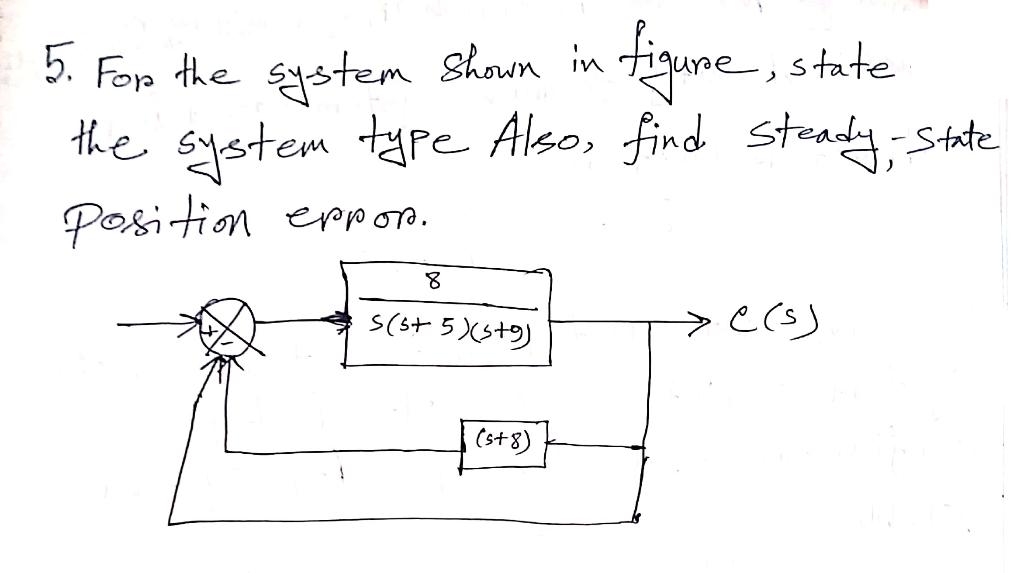 5. For the system shown in figure, state
the system type Also, find steady-state
Position error.
8
s(s+5)(s+9)
+
-
C(s)
(s+8)